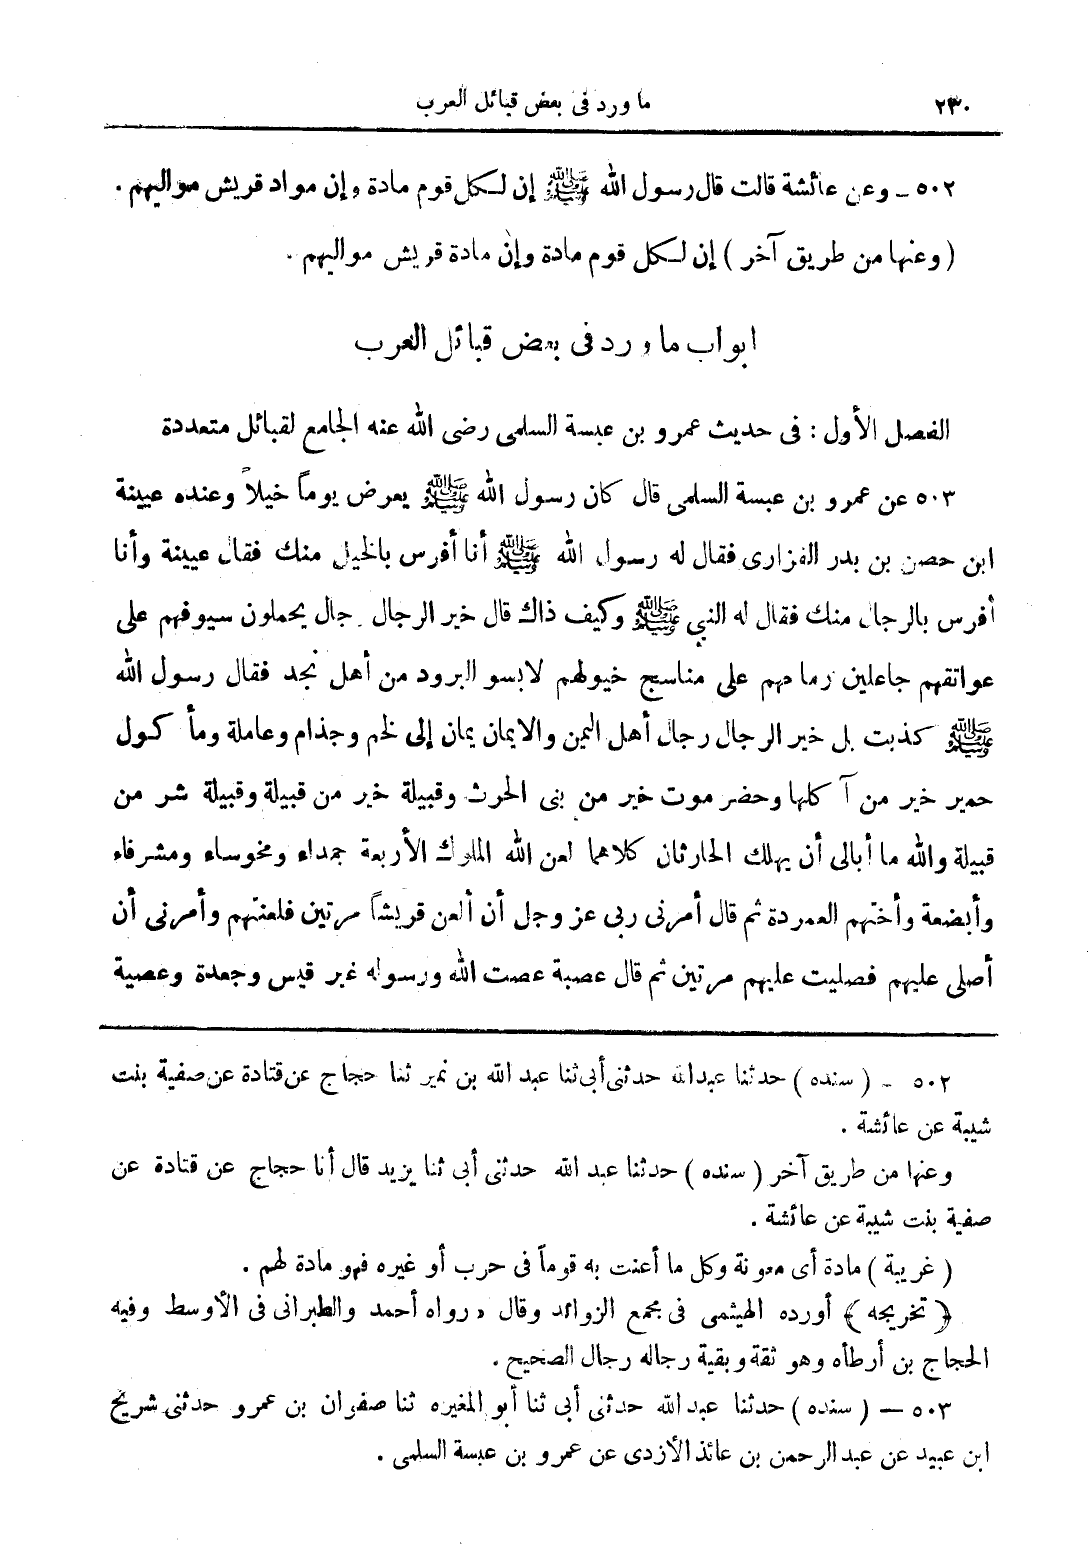 ٢٣٠ ما ورد فى بعض قبائل العرب
٥٠٢ ــ وعن عائشة قالت قال رسول الله ﷺ إن لكل قوم مادة وإن مواد قريش مواليهم .
( وعنها من طريق آخر ) إن لكل قوم مادة وإن مادة قريش مواليهم .
ابواب ما ورد فى بعض قبائل العرب
الفصل الأول : فى حديث عمرو بن عبسة السلمى رضى الله عنه الجامع لقبائل متعددة
٥٠٣ عن عمرو بن عبسة السلمى قال كان رسول الله ﷺ يعرض يوماً خيلاً وعنده عيينة
ابن حصن بن بدر الفزارى فقال له رسول الله ﷺ أنا أفرس بالخيل منك فقال عيينة وأنا
أفرس بالرجال منك فقال له النبي ﷺ وكيف ذاك قال خير الرجال رجال يحملون سيوفهم على
عواتقهم جاعلين رماحهم على مناسج خيولهم لابسو البرود من أهل نجد فقال رسول الله
ﷺ كذبت بل خير الرجال رجال أهل اليمن والايمان يمان إلى لخم وجذام وعاملة ومأكول
حمير خير من آكلها وحضر موت خير من بنى الحرث وقبيلة خير من قبيلة وقبيلة شر من
قبيلة والله ما أبالى أن يهلك الحارثان كلاهما لعن الله الملوك الأربعة جمداء ومخوساء ومشرفاء
وأبضعة وأختهم العمردة ثم قال أمرنى ربى عز وجل أن ألعن قريشاً مرتين فلعنتهم وأمرنى أن
أصلى عليهم فصليت عليهم مرتين ثم قال عصبة عصت الله ورسوله غير قيس وجعدة وعصية
٥٠٢ ــ ( سنده ) حدثنا عبدالله حدثنى أبى ثنا عبد الله بن نمير ثنا حجاج عن قتادة عن صفية بنت
شيبة عن عائشة .
وعنها من طريق آخر ( سنده ) حدثنا عبد الله حدثنى أبى ثنا يزيد قال أنا حجاج عن قتادة عن
صفية بنت شيبة عن عائشة .
( غريبة ) مادة أى معونة وكل ما أعنت به قوماً فى حرب أو غيره فهو مادة لهم .
﴿ تخريجه ﴾ أورده الهيثمى فى مجمع الزوائد وقال « رواه أحمد والطبرانى فى الأوسط وفيه
الحجاج بن أرطأه وهو ثقة وبقية رجاله رجال الصحيح .
٥٠٣ ــ ( سنده ) حدثنا عبد الله حدثنى أبى ثنا أبو المغيره ثنا صفوان بن عمرو حدثنى شريح
ابن عبيد عن عبد الرحمن بن عائذ الأزدى عن عمرو بن عبسة السلمى .